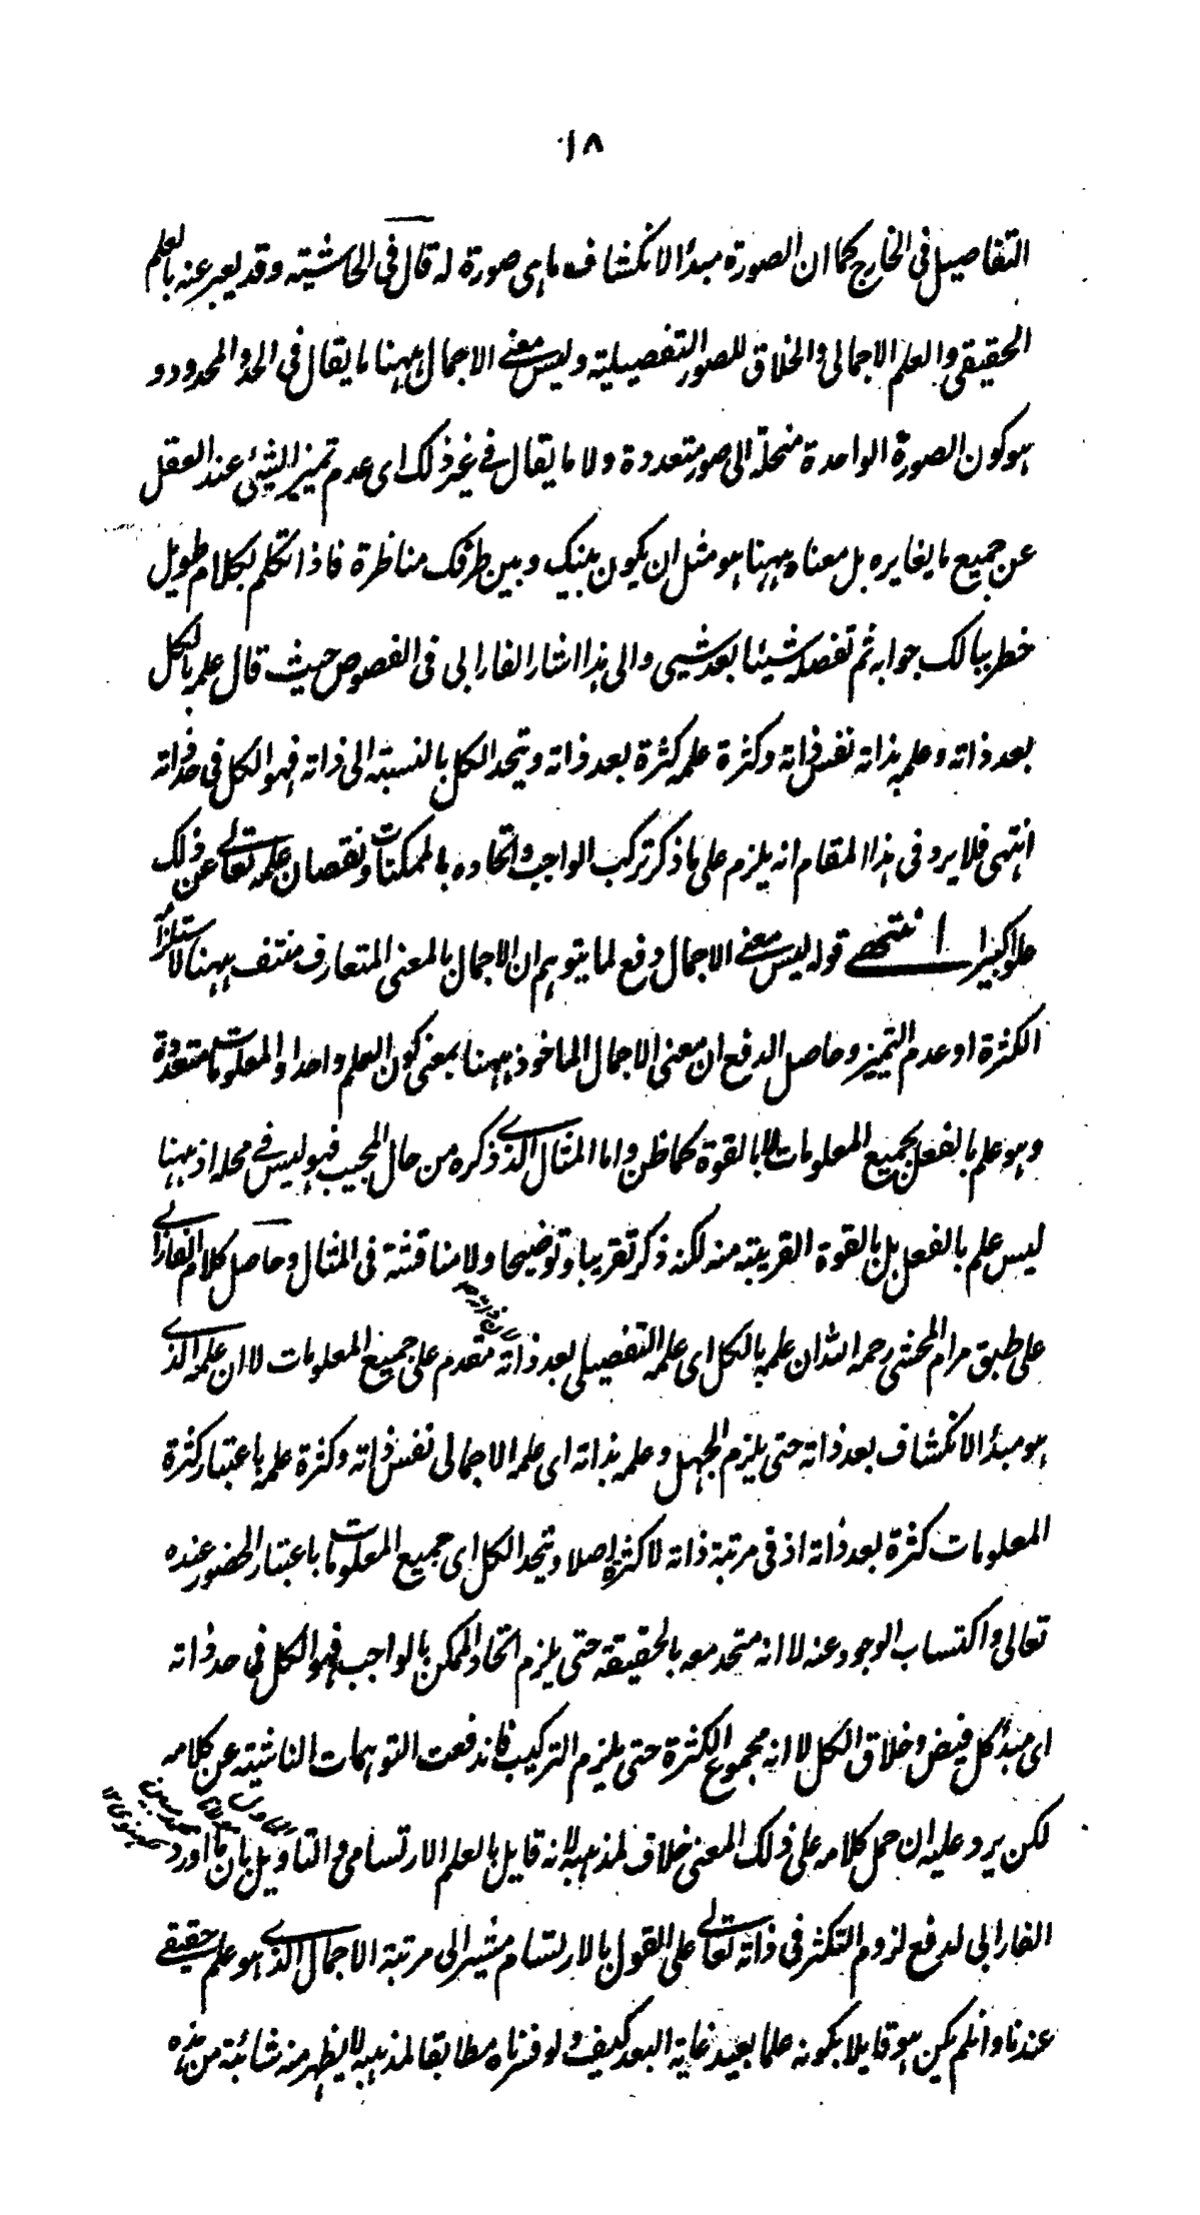 ١٨
التفاصيل فى الخارج كما ان الصورة مبدأ الانكشاف ماهى صورة له قال فى الحاشية وقد يعبر عنه بالعلم
الحقيقى والعلم الاجمالى والخلاق للصور التفصيلية وليس معنى الاجمال ههنا ما يقال فى الحد والمحدود و
هو كون الصورة الواحدة منحلة الى صور متعددة ولا ما يقال فى غير ذلك اى عدم تميز الشئ عند العقل
عن جميع ما يغايره بل معناه ههنا هو مثل ان يكون بينك وبين طرفك مناظرة فاذا تكلم بكلام طويل
خطر ببالك جوابه ثم تفصله شيئا بعد شيى والى هذا اشار الفارابى فى الفصوص حيث قال علمه بالكل
بعد ذاته وعلمه بذاته نفس ذاته وكثرة علمه كثرة بعد ذاته ويتحد الكل بالنسبة الى ذاته فهو الكل فى حد ذاته
انتهى فلا يرد فى هذا المقام انه يلزم على ما ذكر تركب الواجب واتحاده بالممكنات ونقصان علمه تعالى عن ذلك
علوا كبيرا انتهى قوله ليس معنى الاجمال دفع لما يتوهم ان الاجمال بالمعنى المتعارف منتف ههنا لاستلزامه
الكثرة او عدم التميز وحاصل الدفع ان معنى الاجمال الماخوذ ههنا بمعنى كون العلم واحدا والمعلومات متعددة
وهو علم بالفعل بجميع المعلومات لا بالقوة كما ظن واما المثال الذى ذكره من حال المجيب فهو ليس فى محله اذ ههنا
ليس علم بالفعل بل بالقوة القريبة منه لكنه ذكر تقريبا وتوضيحا ولا مناقشة فى المثال وحاصل كلام الفارابى
على طبق مرام المحشى رحمه الله ان علمه بالكل اى علمه التفصيلى بعد ذاته متقدم على جميع المعلومات لا ان علمه الذى
هو مبدأ الانكشاف بعد ذاته حتى يلزم الجهل وعلمه بذاته اى علمه الاجمالى نفس ذاته وكثرة علمه باعتبار كثرة
المعلومات كثرة بعد ذاته اذ فى مرتبة ذاته لا كثرة اصلا ويتحد الكل اى جميع المعلومات باعتبار الحضور عنده
تعالى واكتساب الوجود عنه لا انه متحد معه بالحقيقة حتى يلزم اتحاد الممكن بالواجب فهو الكل فى حد ذاته
اى مبدأ كل فيض وخلاق الكل لا انه مجموع الكثرة حتى يلزم التركيب فاندفعت التوهمات الناشية عن كلامه
لكن يرد عليه ان حمل كلامه على ذلك المعنى خلاف لمذهبه لانه قايل بالعلم الارتسامى والتاويل بان ما اورد
الفارابى لدفع لزوم التكثر فى ذاته تعالى على القول بالارتسام مشير الى مرتبة الاجمال الذى هو علم حقيقى
عندنا وان لم يكن هو قايلا بكونه علما بعيد غاية البعد كيف ولو فسرناه مطابقا لمذهبه لا يظهر منه شائبة من هذه